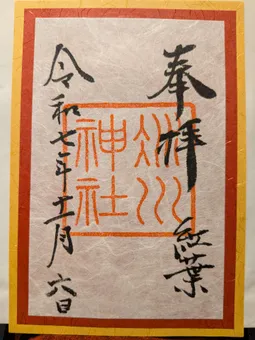 奉拝
紅葉
氷川
神社
令和七年十一月六日